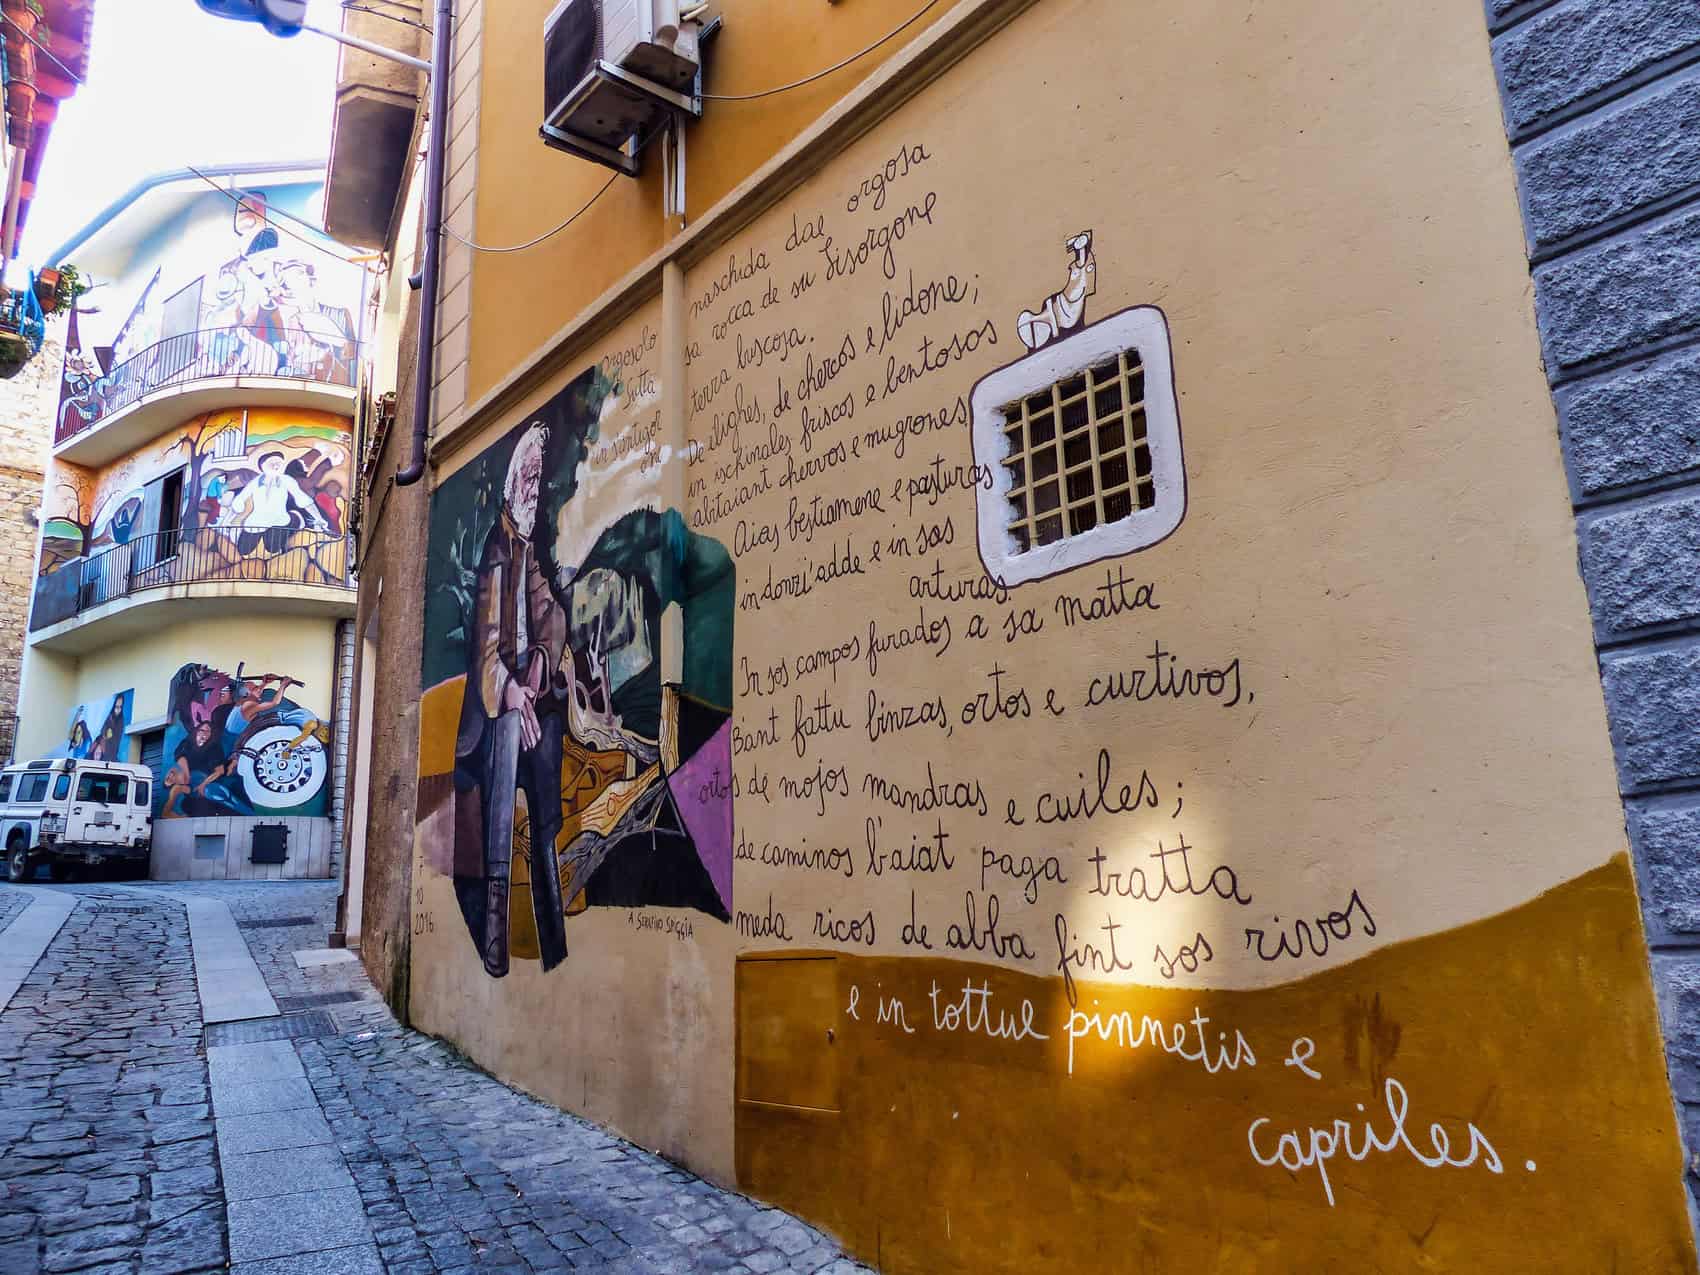 Orgosolo
e sutta
in s'antigor
naschida dae orgosa
sa rocca de su Lisorgone
terra buscosa.
De elighes, de chercos e lidone;
in ischinales friscos e bentosos
abitaiant chervos e mugrones
Aias bestiamene e pasturas
in donzi'adde e in sas
arturas.
In sos campos furados a sa matta
Bant fattu binzas, ortos e curtivos,
ortos de mojos mandras e cuiles;
de caminos b'aiat paga tratta
meda ricos de abba fint sos rivos
e in tottue pinnetis e
capriles.
10
2016
A SERAFINO SPIGGIA